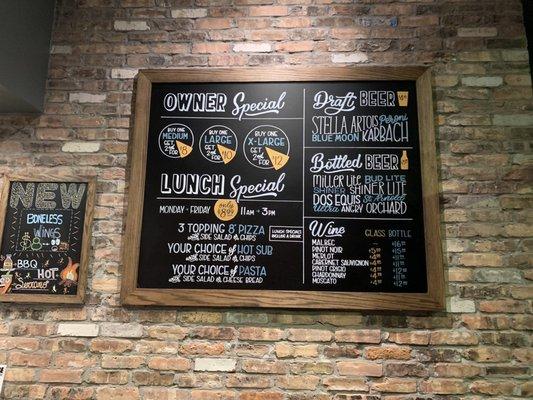 NEW
BONELESS
WINGS
BBQ
HOT
OWNER Special
BUY ONE
MEDIUM
GET
2nd
FOR
$8
BUY ONE
LARGE
GET
2nd
FOR
$10
BUY ONE
X-LARGE
GET
2nd
FOR
$12
LUNCH Special
MONDAY - FRIDAY
only
11AM - 3PM
3 TOPPING 8" PIZZA
with SIDE SALAD or CHIPS
LUNCH SPECIALS
INCLUDE A DRINK
YOUR CHOICE of HOT SUB
with SIDE SALAD or CHIPS
YOUR CHOICE of PASTA
with SIDE SALAD or CHEESE BREAD
Draft BEER
STELLA ARTOIS Peroni
BLUE MOON KARBACH
Bottled BEER
MILLER LITE BUD LITE
SHINER SHINER LITE
DOS EQUIS St Arnold
ULTRA ANGRY ORCHARD
Wine GLASS BOTTLE
MALBEC
PINOT NOIR
MERLOT
CABERNET SAUVIGNON
PINOT GRIGIO
CHARDONNAY
MOSCATO